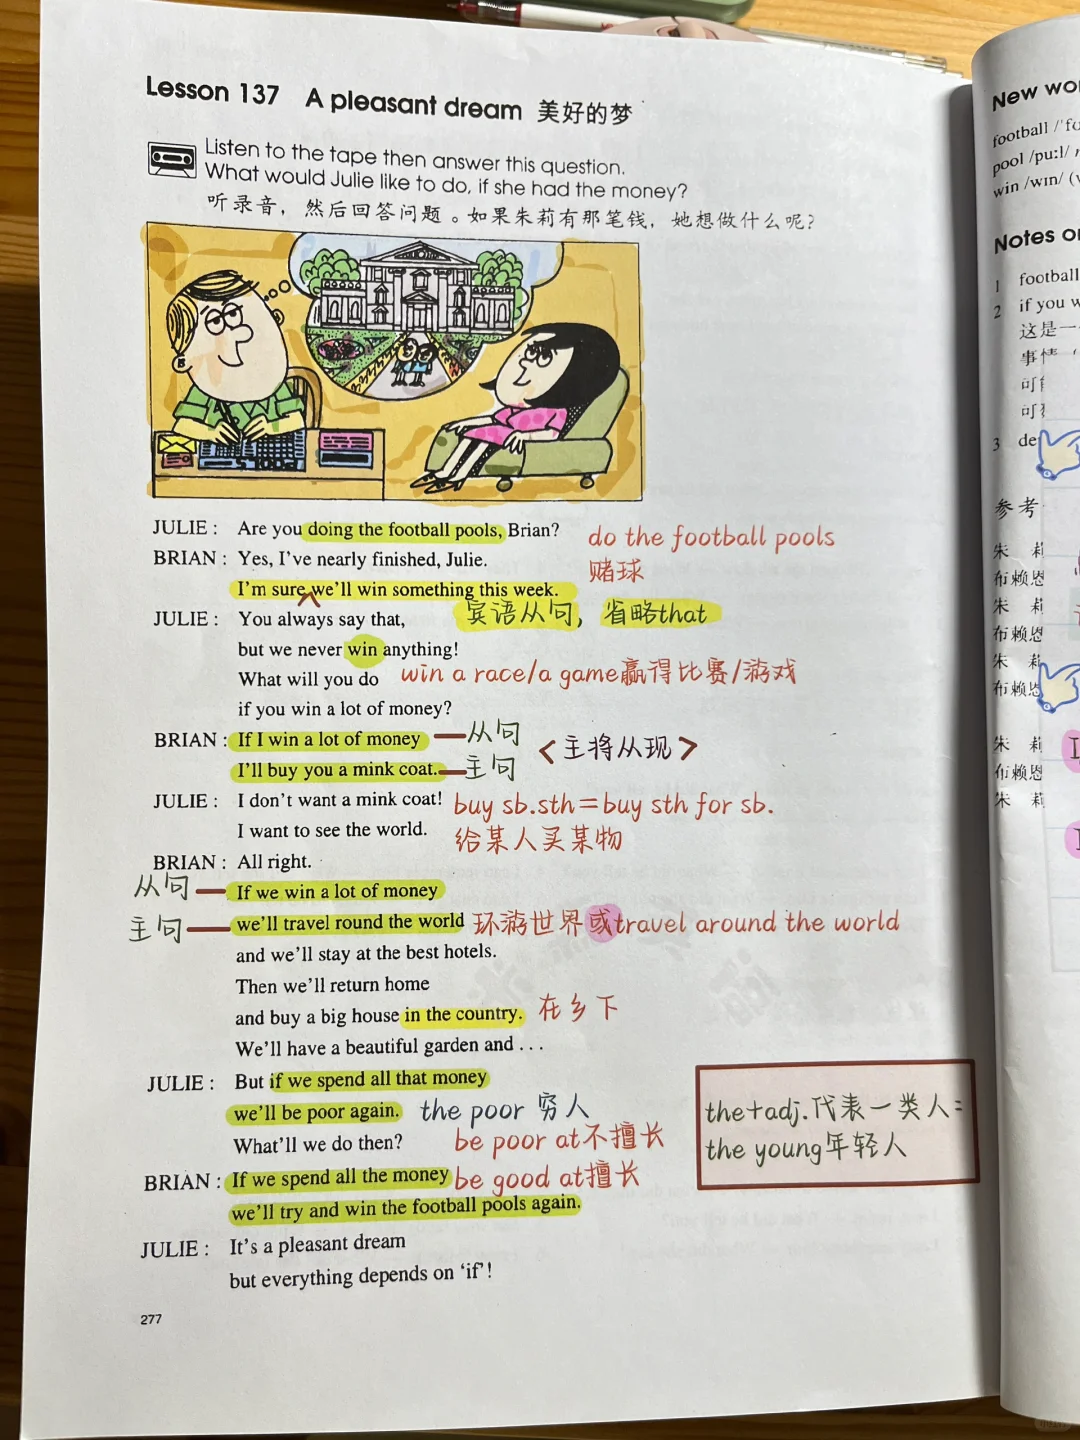 Lesson 137 A pleasant dream 美好的梦
Listen to the tape then answer this question.
What would Julie like to do, if she had the money?
听录音，然后回答问题。如果朱莉有那笔钱，她想做什么呢?
JULIE : Are you doing the football pools, Brian?
do the football pools
BRIAN : Yes, I've nearly finished, Julie.
赌球
I'm sure we'll win something this week.
宾语从句，省略that
JULIE : You always say that,
but we never win anything!
What will you do
win a race/a game赢得比赛/游戏
if you win a lot of money?
BRIAN : If I win a lot of money
从句
<主将从现>
I'll buy you a mink coat.
主句
JULIE : I don't want a mink coat!
buy sb.sth=buy sth for sb.
I want to see the world.
给某人买某物
BRIAN : All right.
从句
If we win a lot of money
主句
we'll travel round the world
环游世界或travel around the world
and we'll stay at the best hotels.
Then we'll return home
and buy a big house in the country.
在乡下
We'll have a beautiful garden and . . .
JULIE : But if we spend all that money
we'll be poor again.
the poor 穷人
What'll we do then?
be poor at不擅长
the+adj.代表一类人:
the young年轻人
BRIAN : If we spend all the money
be good at擅长
we'll try and win the football pools again.
JULIE : It's a pleasant dream
but everything depends on 'if'!
277
New wo
football /'f
pool /pu:l/
win /wɪn/ (
Notes o
1 football
2 if you w
这是一
事情
可
可
3 de
参考
朱 莉
布赖恩
朱 莉
布赖恩
朱 莉
布赖恩
朱 莉
布赖恩
朱 莉